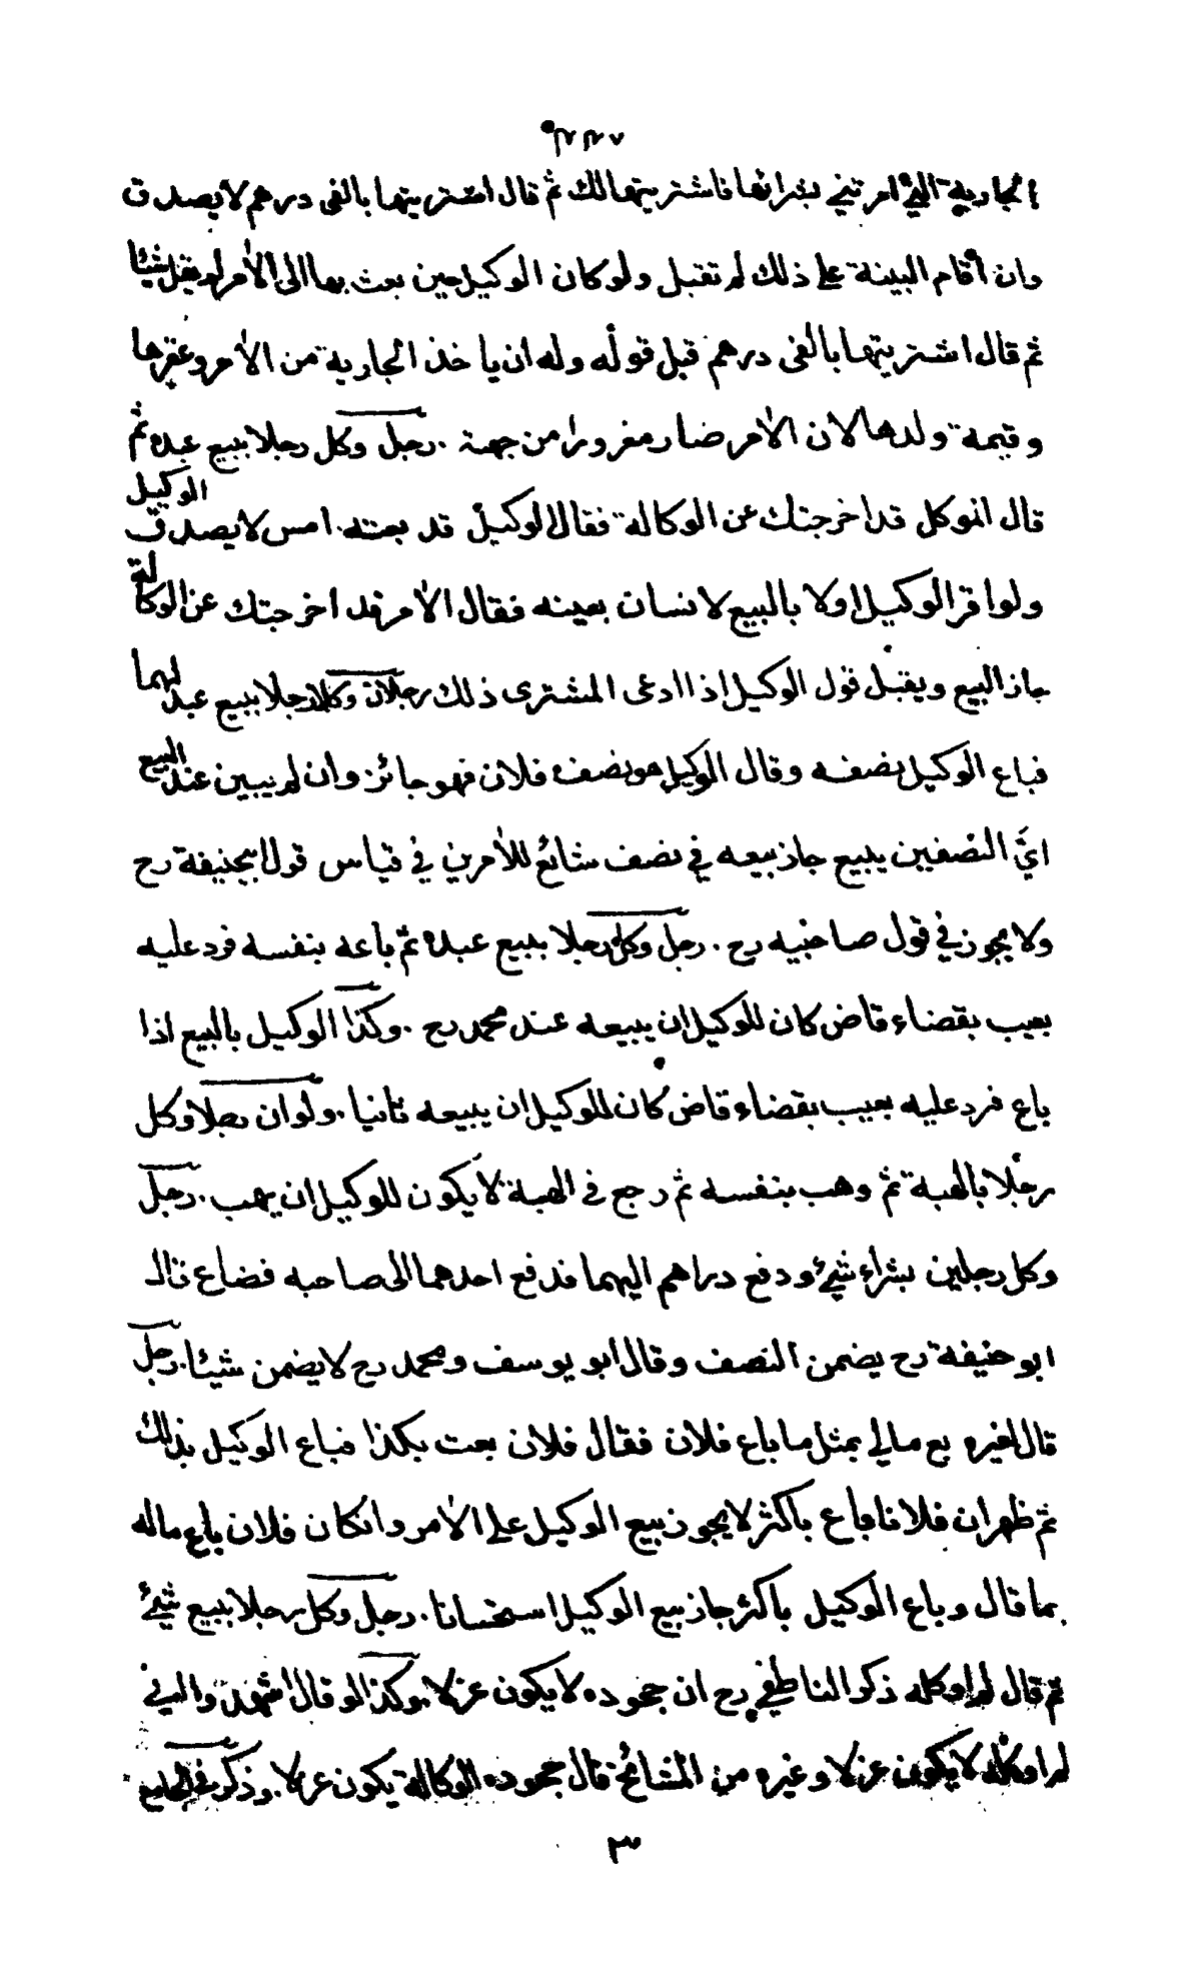 ٢٢٧
الجارية التي امرتني بشرائها فاشتريتها لك ثم قال اشتريتها بالفى درهم لا يصدق
وان أقام البينة على ذلك لم تقبل ولو كان الوكيل حين بعث بها الى الأمر لم يقل شيئا
ثم قال اشتريتها بالفى درهم قبل قوله وله ان ياخذ الجارية من الأمر وعقرها
وقيمة ولدها لان الأمر صار مغرورا من جهته . رجل وكل رجلا ببيع عبده ثم
قال الموكل قد اخرجتك عن الوكالة فقال الوكيل قد بعته امس لا يصدق الوكيل
ولو اقر الوكيل اولا بالبيع لانسان بعينه فقال الأمر قد اخرجتك عن الوكالة
جاز البيع ويقبل قول الوكيل اذا ادعى المشترى ذلك رجلان وكلا رجلا ببيع عبد لهما
فباع الوكيل نصفه وقال الوكيل هو نصف فلان فهو جائز وان لم يبين عند البيع
ايَّ النصفين يبيع جاز بيعه في نصف شائع للأمرين في قياس قول ابيحنيفة رح
ولا يجوز في قول صاحبيه رح . رجل وكل رجلا ببيع عبده ثم باعه بنفسه فرد عليه
بعيب بقضاء قاض كان للوكيل ان يبيعه عند محمد رح . وكذا الوكيل بالبيع اذا
باع فرد عليه بعيب بقضاء قاض كان للوكيل ان يبيعه ثانيا . ولو ان رجلا وكل
رجلا بالهبة ثم وهب بنفسه ثم رجع فى الهبة لا يكون للوكيل ان يهب . رجل
وكل رجلين بشراء شيئ ودفع دراهم اليهما فدفع احدهما الى صاحبه فضاع قال
ابو حنيفة رح يضمن النصف وقال ابو يوسف ومحمد رح لا يضمن شيئا . رجل
قال لغيره بع مالي بمثل ما باع فلان فقال فلان بعت بكذا فباع الوكيل بذلك
ثم ظهر ان فلانا باع باكثر لا يجوز بيع الوكيل على الأمر وانكان فلان باع ماله
بما قال وباع الوكيل باكثر جاز بيع الوكيل استحسانا . رجل وكل رجلا ببيع شيئ
ثم قال لم اوكله ذكر الناطفي رح ان جحوده لا يكون عزلا . وكذا لو قال اشهدوا اني
لم اوكله لا يكون عزلا وغيره من المشائخ قال جحوده الوكالة يكون عزلا . وذكر فى الجامع
٣